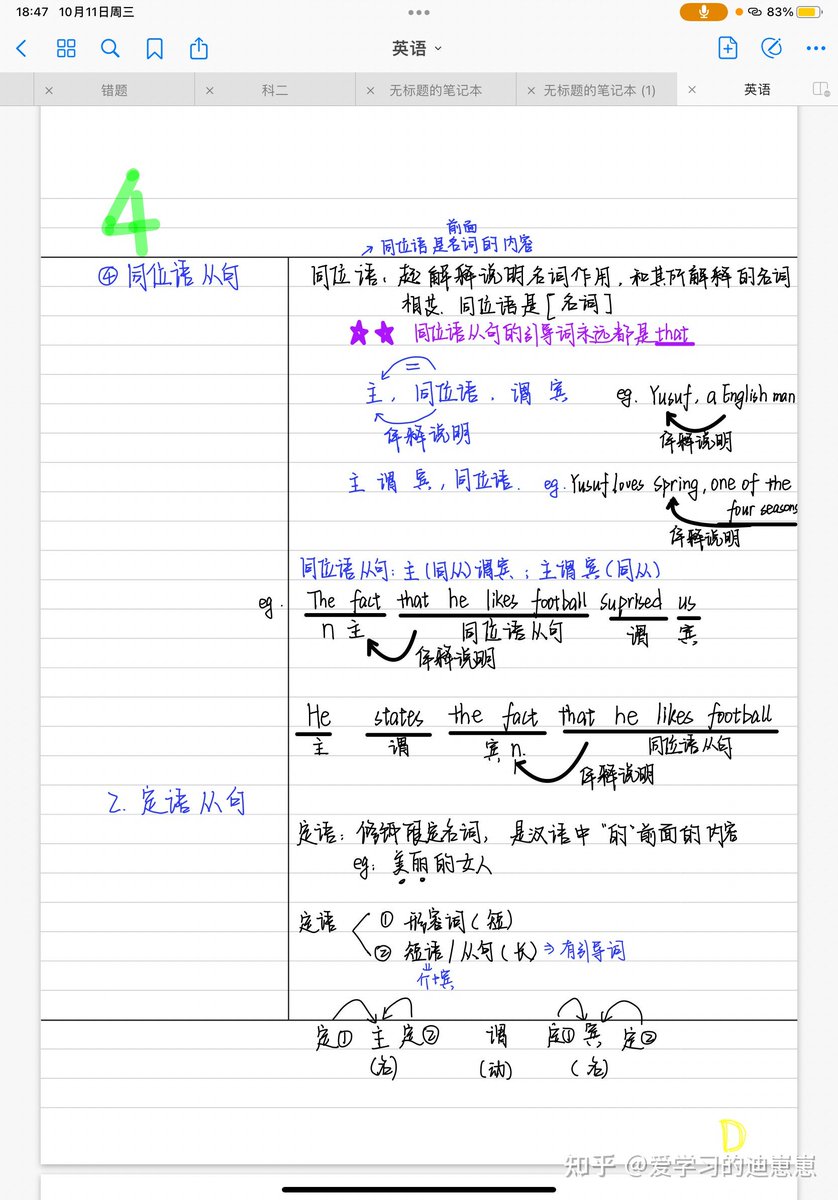 18:47 10月11日周三
83%
英语
错题
科二
无标题的笔记本
无标题的笔记本 (1)
英语
4
前面
同位语是名词的内容
④ 同位语从句
同位语：起解释说明名词作用，和其所解释的名词
相等. 同位语是[名词]
★★ 同位语从句的引导词永远都是that
=
主，同位语，谓 宾 eg. Yusuf, a English man
解释说明 解释说明
主 谓 宾，同位语. eg. Yusuf loves spring, one of the
four seasons
解释说明
同位语从句：主(同从)谓宾；主谓宾(同从)
eg. The fact that he likes football suprised us
n 主 同位语从句 谓 宾
解释说明
He states the fact that he likes football
主 谓 宾 n. 同位语从句
解释说明
2. 定语从句
定语：修饰限定名词，是汉语中"的"前面的内容
eg: 美丽的女人
定语 ① 形容词(短)
② 短语/从句(长)⇒有引导词
介+宾
定① 主 定② 谓 定① 宾 定②
(名) (动) (名)
D
知乎 @爱学习的迪崽崽